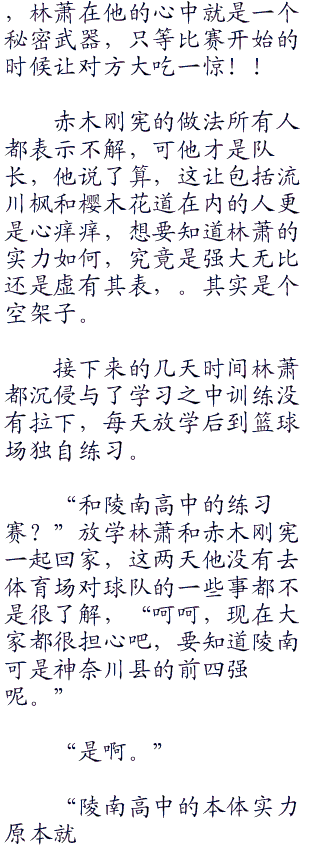 ，林萧在他的心中就是一个
秘密武器，只等比赛开始的
时候让对方大吃一惊！！
赤木刚宪的做法所有人
都表示不解，可他才是队
长，他说了算，这让包括流
川枫和樱木花道在内的人更
是心痒痒，想要知道林萧的
实力如何，究竟是强大无比
还是虚有其表，。其实是个
空架子。
接下来的几天时间林萧
都沉侵与了学习之中训练没
有拉下，每天放学后到篮球
场独自练习。
“和陵南高中的练习
赛？”放学林萧和赤木刚宪
一起回家，这两天他没有去
体育场对球队的一些事都不
是很了解，“呵呵，现在大
家都很担心吧，要知道陵南
可是神奈川县的前四强
呢。”
“是啊。”
“陵南高中的本体实力
原本就